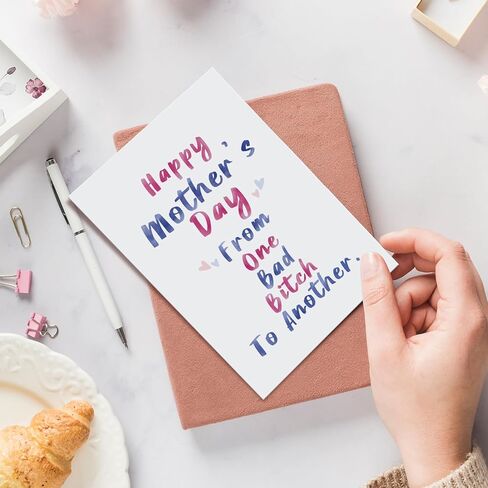 Happy
Mother's
Day
From
One
Bad
Bitch
To Another.